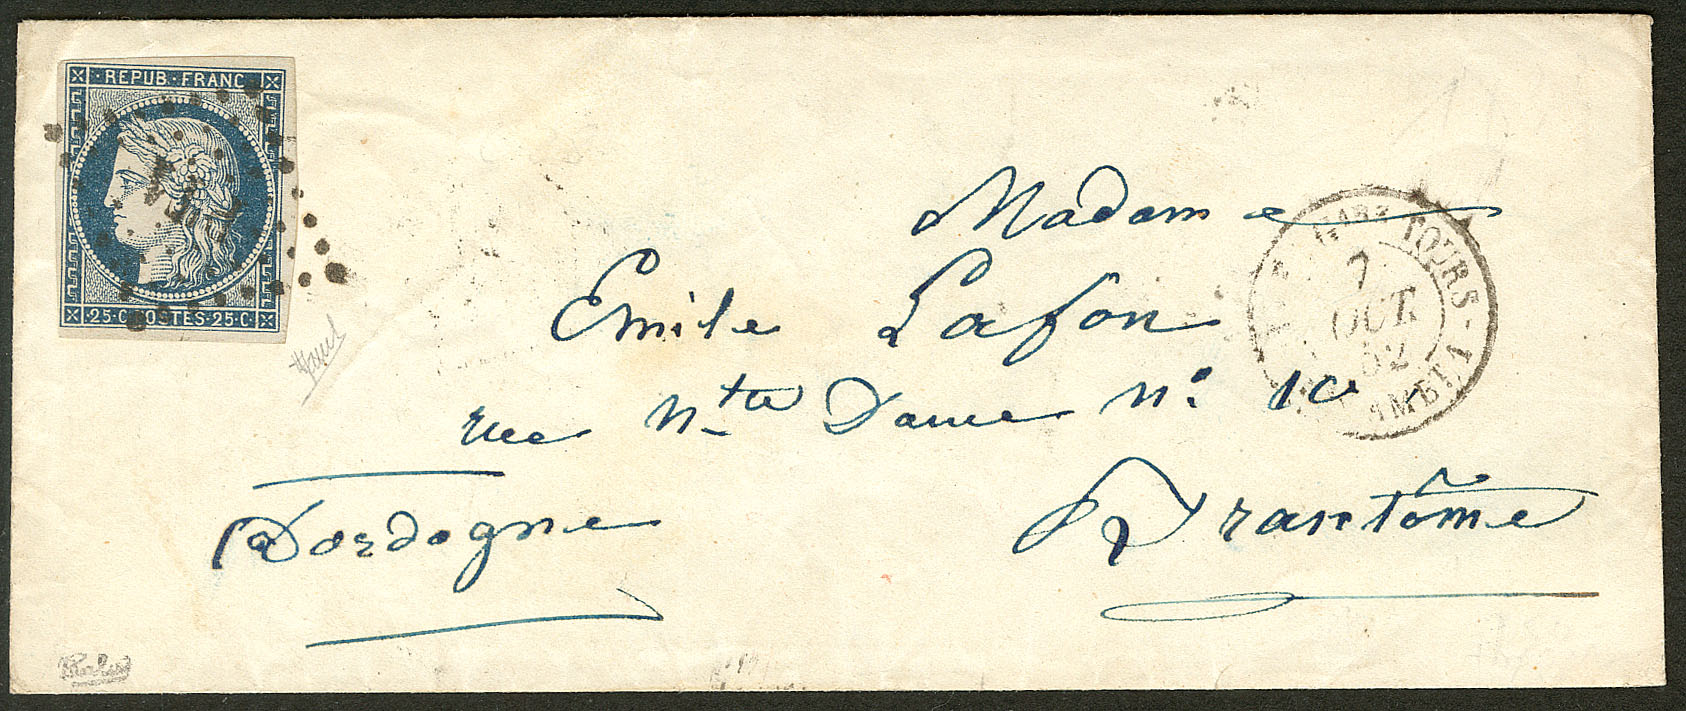 REPUB·FRANC
25·C·POSTES·25·C·
Madame
Emile Lafon
rue Nte Dame No. 10
Brantôme
Dordogne
TOURS
7
OCT.
52